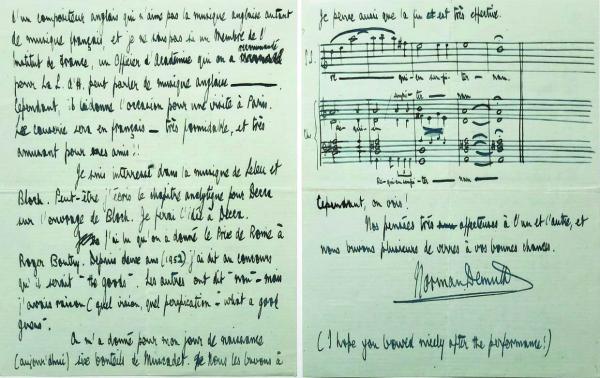 d'un compositeur anglais qui n'aime pas la musique anglaise autant
de musique français, et je ne sais pas si un Membre de l'
Institut de France, un Officier d'Academie qui on a recommandé
pour La L. d'H. peut parler de musique anglaise
Cependant, il la donne l'occasion pour une visite à Paris.
La causerie sera en français – très formidable, et très
amusant pour mes amis!!
Je suis interessé dans la musique de Leleu et
Bloch. Peut-être j'écris le chapitre analytique pour Decca
sur l'ouvrage de Bloch. Je ferai l'idée à Decca.
J'ai lu qu'on a donné le Prix de Rome à
Roger Boutry. Depuis deux ans (1952) j'ai dit au concours
qu'il serait "the goods". Les autres ont dit "non" – mais
j'avais raison (quel vision, quel perspication – what a good
guess".
On m'a donné pour mon jour de naissance
(aujourd'hui) six bouteils de Muscadet. Je Nous les buvons à
Je pense aussi que la fin est très effective.
re qui-em sempi-ter nam.
sempi-ter nam
Re-qui-em sempi-ter nam
Cependant, on vois!
Nos pensées très affectueuses à l'un et l'autre, et
nous buvons plusieurs de verres à vos bonnes chances.
Norman Demuth
(I hope you bowed nicely after the performance!)